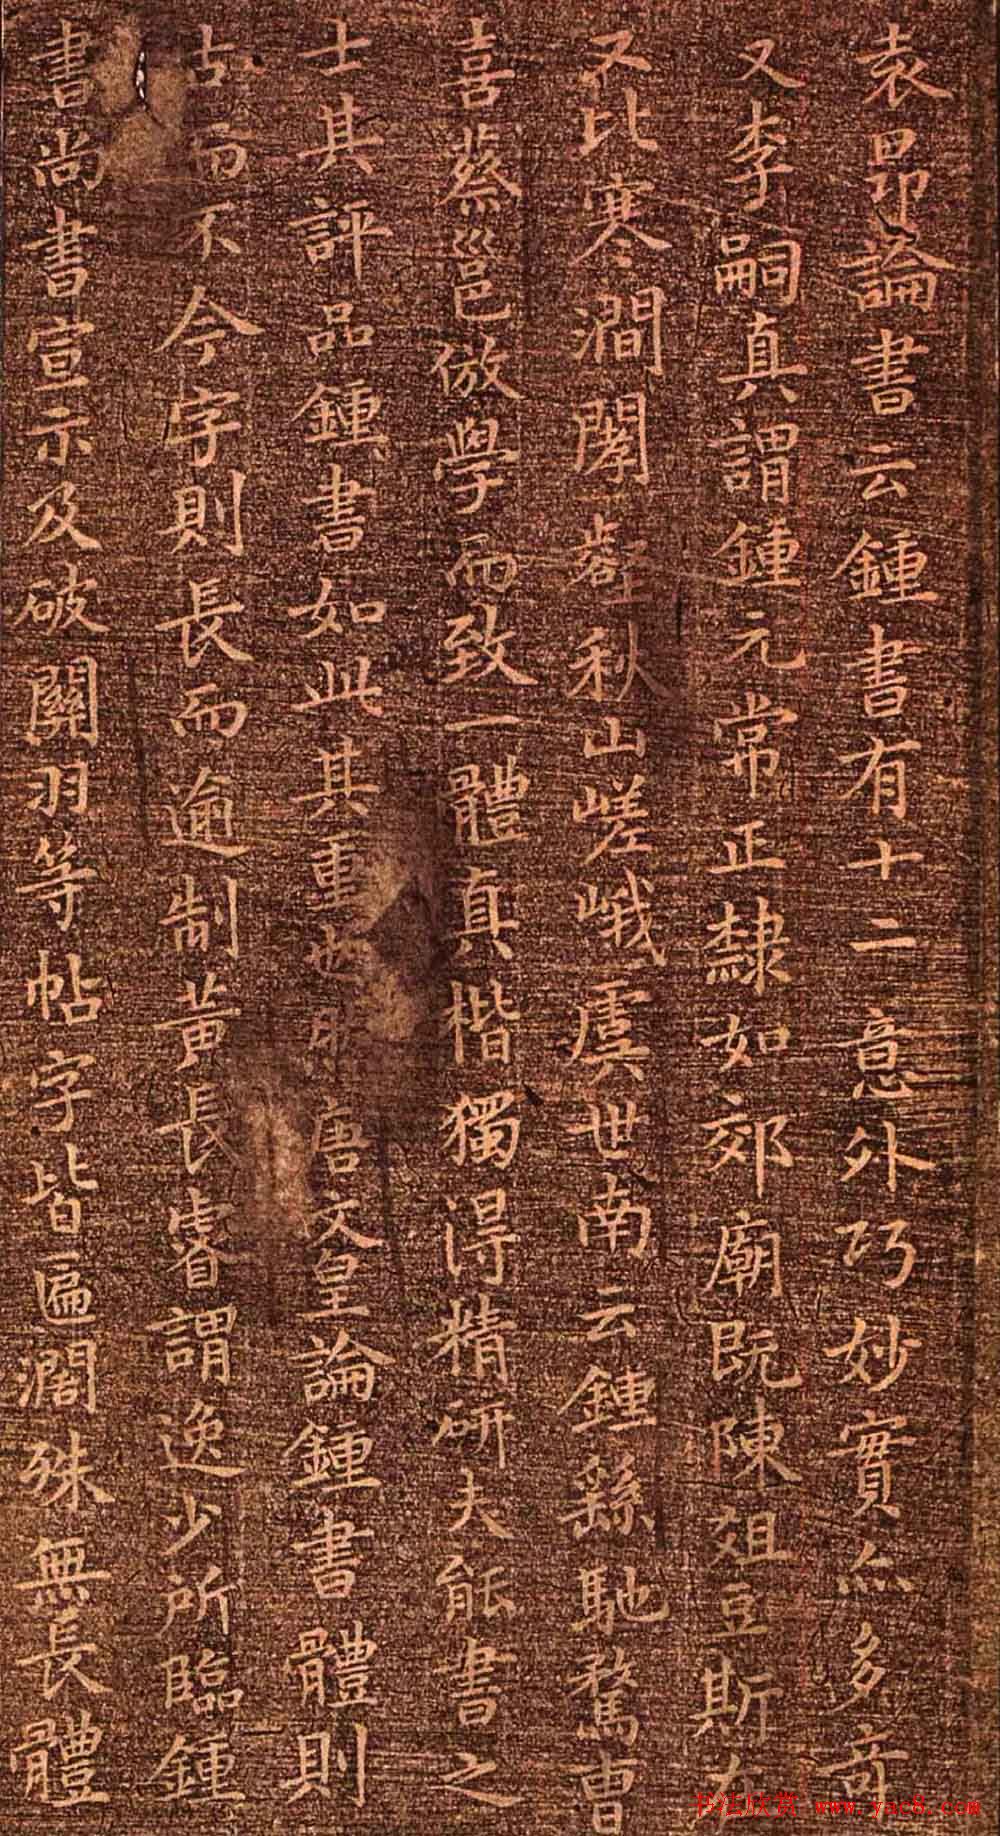 袁昂論書云鍾書有十二意外巧妙實亦多奇
又李嗣真謂鍾元常正隸如郊廟既陳俎豆斯在
又比寒澗闃壑秋山嵯峨虞世南云鍾繇馳騖曹
喜蔡邕倣學而致一體真楷獨得精研夫能書之
士其評品鍾書如此其重也 唐文皇論鍾書體則
古而不今字則長而逾制黃長睿謂逸少所臨鍾
書尚書宣示及破關羽等帖字皆匾闊殊無長體
书法欣赏 www.yac8.com